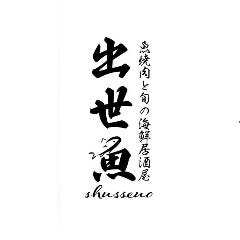 魚焼肉と旬の海鮮居酒屋
出世魚
shusseuo